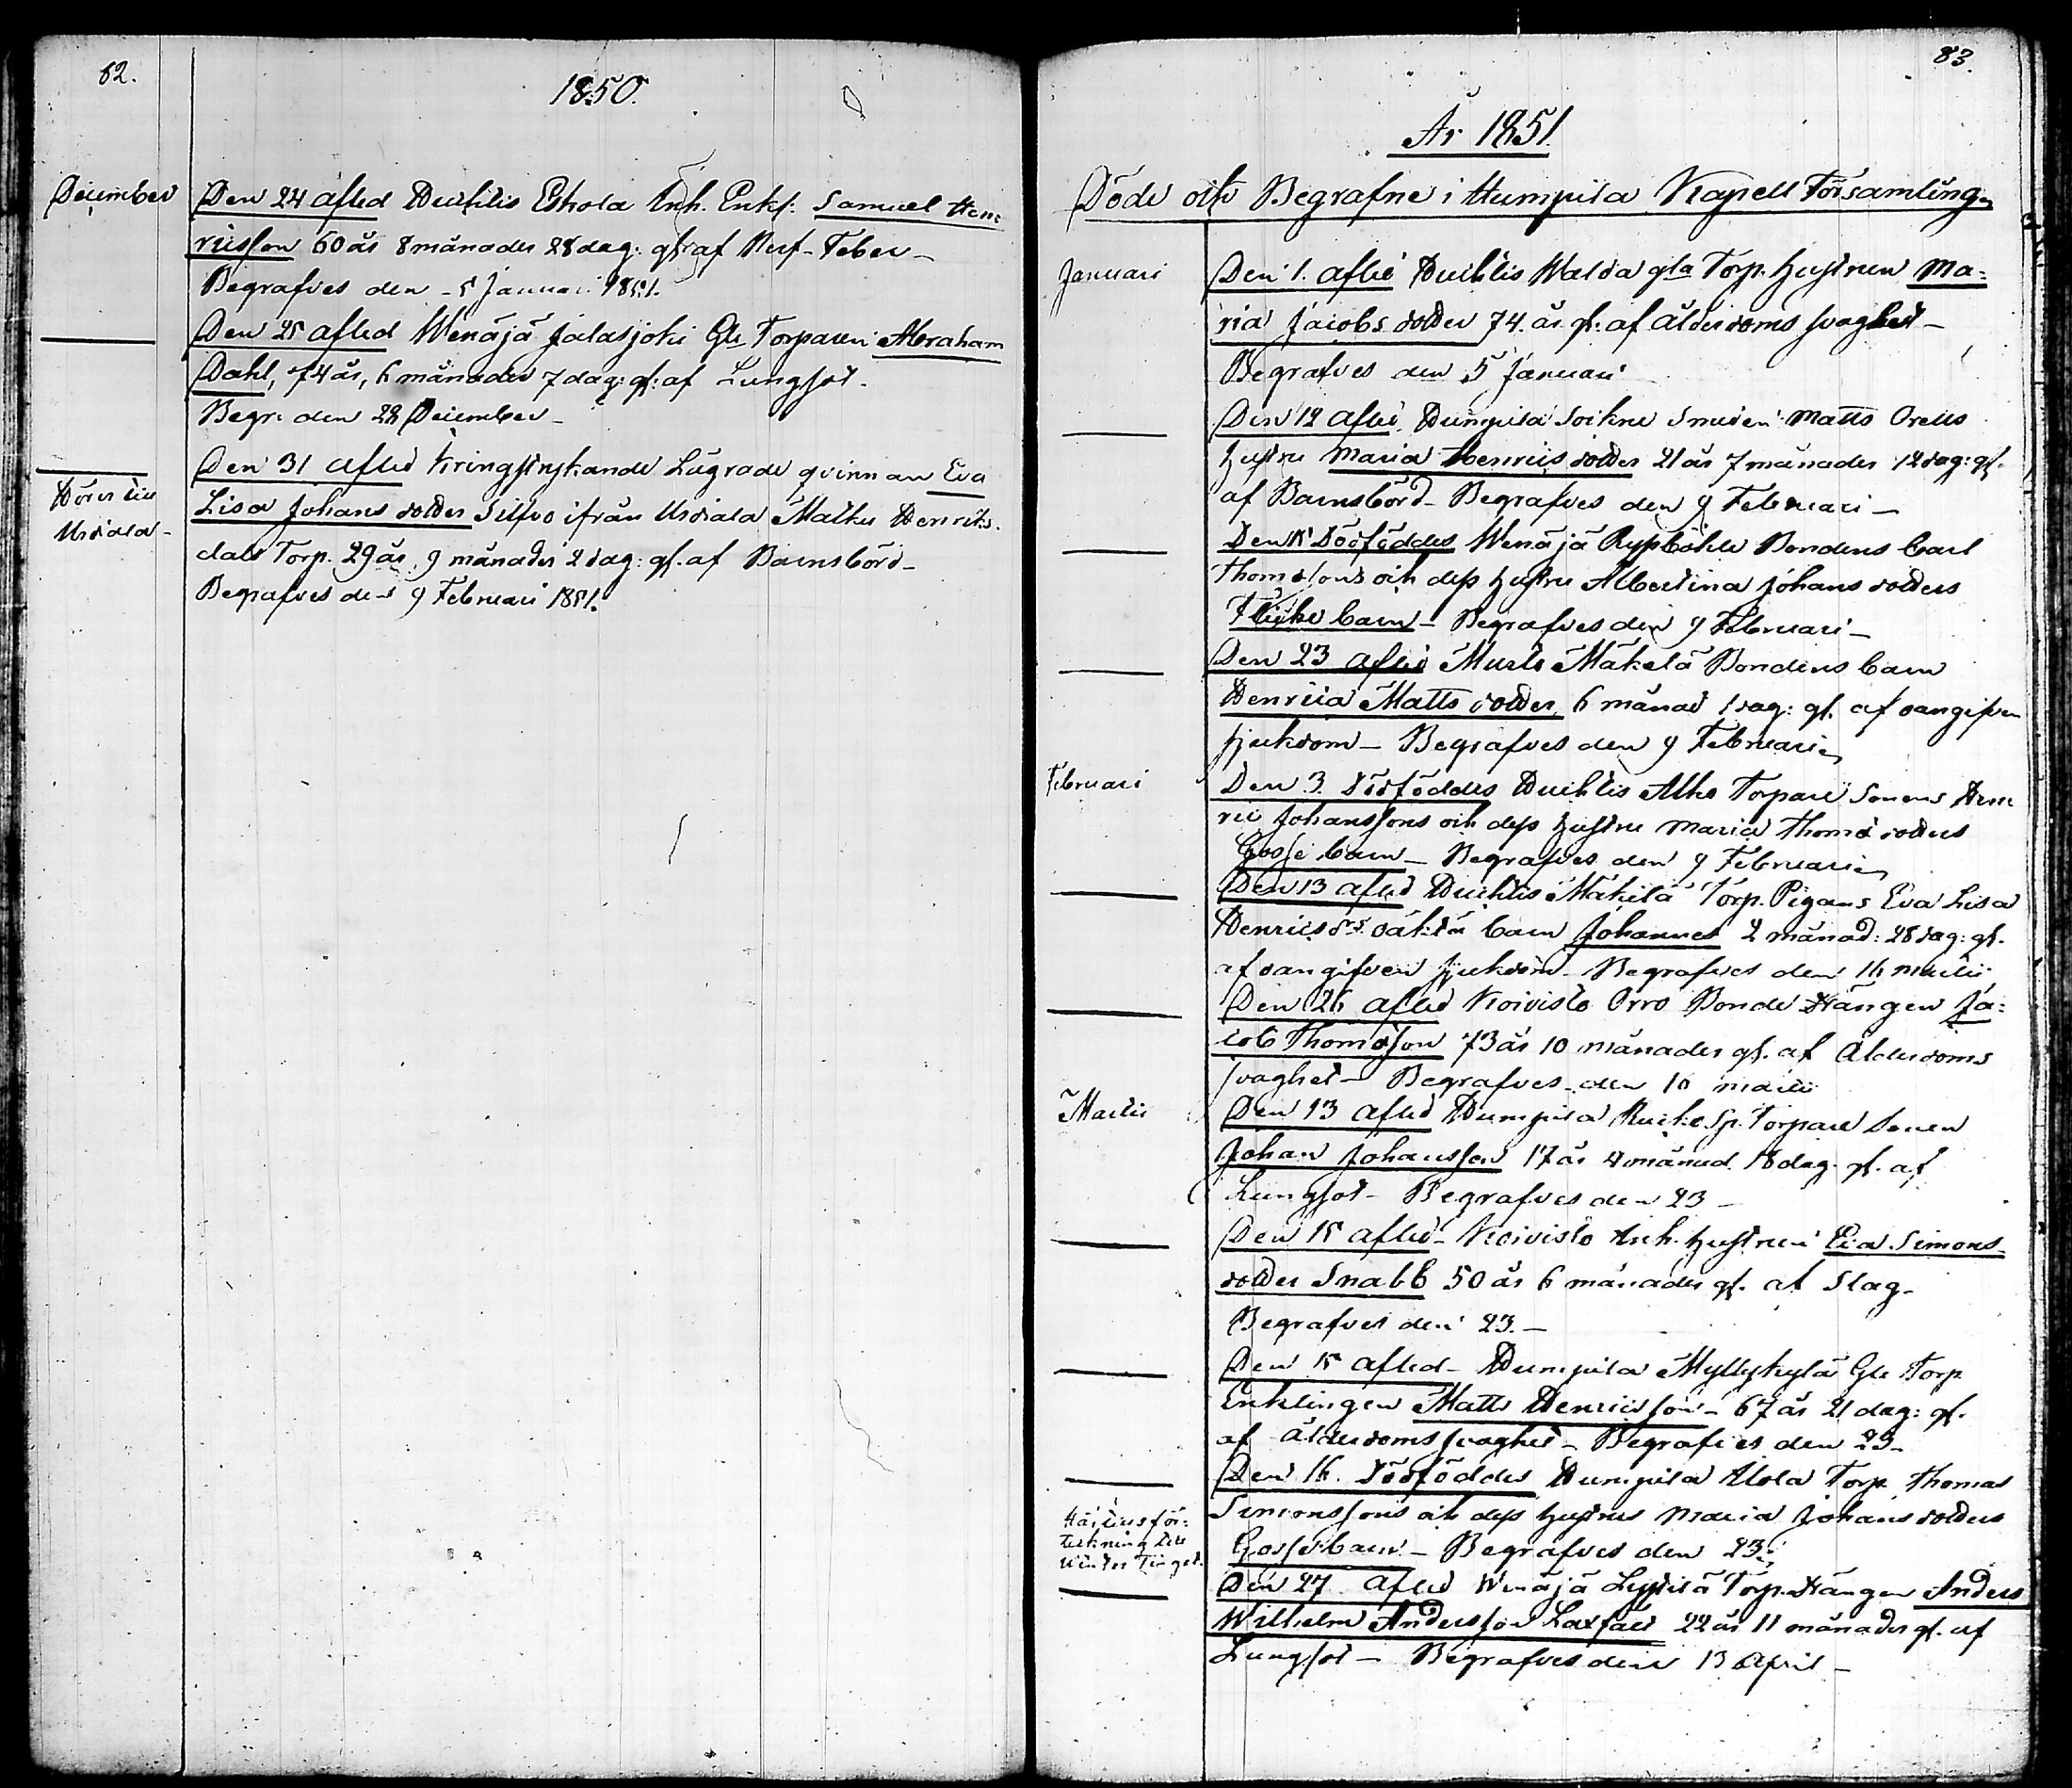 62.
1850.
December
Den 24 afled Huhtis Eskola Inh. Enkl: Samuel Hen=
ricsson 60 år 8 månader 28 dag: gl. af Nerf-Feber –
Begrafves den 5 Januari 1851.
Den 25 afled Wenäjä Jalasjoki Gle Torparen Abraham
Dahl, 74 år, 6 månader 7 dag: gl: af Lungsot.
Begr. den 28 December –
Den 31 afled Kringstrykande Lägrade qvinnan Eva
Hörer till
Lisa Johans dotter Silfvo ifrån Urdiala Matku Henriks-
Urdiala –
dals Torp. 29 år, 9 månader 2 dag: gl. af Barnsbörd –
Begrafves den 9 Februari 1851.
83.
År 1851.
Döde och Begrafne i Humpila Kapell Församling.
Januari
Den 1. afled Huhtis Walda gla Torp. Hustrun Ma=
ria Jacobs dotter 74. år. gl. af Ålderdoms svaghet –
Begrafves den 5 Januari
Den 12 afled Humpila Sockne Smeden Matts Orells
Hustru Maria Henrics dotter 21 år 7 månader 12 dag: gl.
af Barnsbörd – Begrafves den 9 Februari –
Den 15 Dödföddes Wenäjä Bondens Carl
Thomassons och dess Hustru Albertina Johans dotters
Flicke barn – Begrafves den 9 Februari –
Den 23 afled Murto Mäkelä Bondens barn
Henrica Matts dotter, 6 månad 1 dag: gl. af oangifven
sjukdom – Begrafves den 9 Februari
Februari
Den 3. Dödföddes Huhtis Alho Torpare Sonens Hen
ric Johanssons och dess Hustru Maria Thomæ dotters
Gosse barn – Begrafves den 9 Februari
Den 13 afled Huhtis Mäkilä Torp. Pigans Eva Lisa
Henricsdrs oäkta barn Johannes 2 månad: 28 dag: gl.
af oangifven sjukdom – Begrafves den 16 Martii
Den 26 afled Koivisto Orro Bonde Mågen Ja=
cob Thomasson 73 år 10 månader gl. af Ålderdoms
svaghet – Begrafves den 10 Martii
Martii
Den 13 afled Humpila Torpare Sonen
Johan Johansson 17 år 4 månad. 18 dag. gl. af
Lungsot – Begrafves den 23 –
Den 15 afled – Koivisto Inh. Hustrun Eva Simons
dotter Snabb 50 år 6 månader gl. af Slag –
Begrafves den 23. –
Den 15 afled – Humpila Myllykylä Gle Torp
Enklingen Matts Henricsson – 67 år 21 dag: gl.
af Ålderdoms svaghet – Begrafves den 23 –
Den 16. Dödföddes Humpila Torp. Thomas
Simonssons och dess Hustrus Maria Johans dotters
Gossebarn – Begrafves den 23.
Härtills för=
teckning till
Vinter Tinget.
Den 27 afled Wenäjä Torp. Mågen Anders
Wilhelm Andersson 22 år 11 månader gl. af
Lungsot – Begrafves den 13 April –